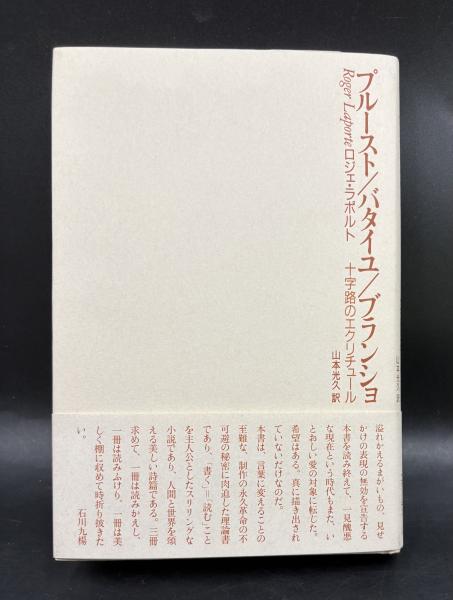 プルースト/バタイユ/ブランショ
十字路のエクリチュール
Roger Laporte ロジェ・ラポルト
山本光久 訳
溢れかえるまがいもの、見せ
かけの表現の無効を宣告する
本書を読み終えて、一見醜悪
な現在という時代もまた、い
とおしい愛の対象に転じた。
希望はある。真に描き出され
ていないだけなのだ。
本書は、言葉に変えることの
至難な、制作の永久革命の不
可避の秘密に肉迫した理論書
であり、「書く」=「読む」こと
を主人公としたスリリングな
小説であり、人間と世界を頌
える美しい詩篇である。三冊
求めて、一冊は読みかえし、
一冊は読みふけり、一冊は美
しく棚に収めて時折り披きた
い。
石川九楊